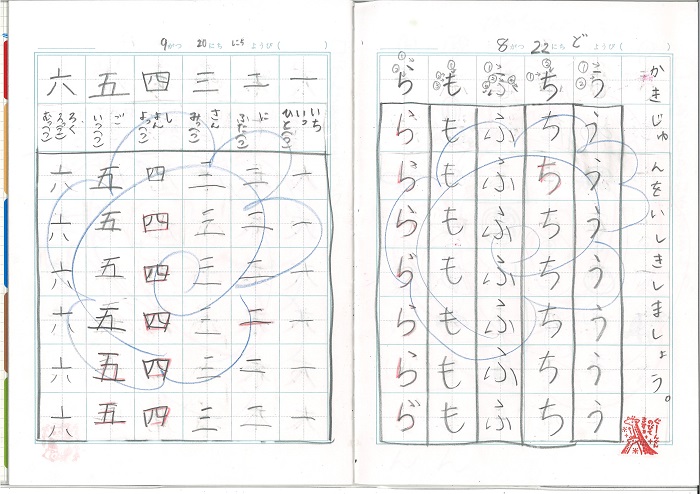 8がつ22にち ど ようび( )
かきじゅんをいしきしましょう。
うううううううう
ちちちちちちちち
ふふふふふふふふ
もももももももも
らららららららら
9がつ20にち にち ようび( )
一
いち
いっ
ひと(つ)
一一一一一一
二
に
ふた(つ)
二二二二二二
三
さん
みっ(つ)
三三三三三三
四
し
よん
よっ(つ)
四四四四四四
五
ご
いつ(つ)
五五五五五五
六
ろく
むっ(つ)
六六六六六六